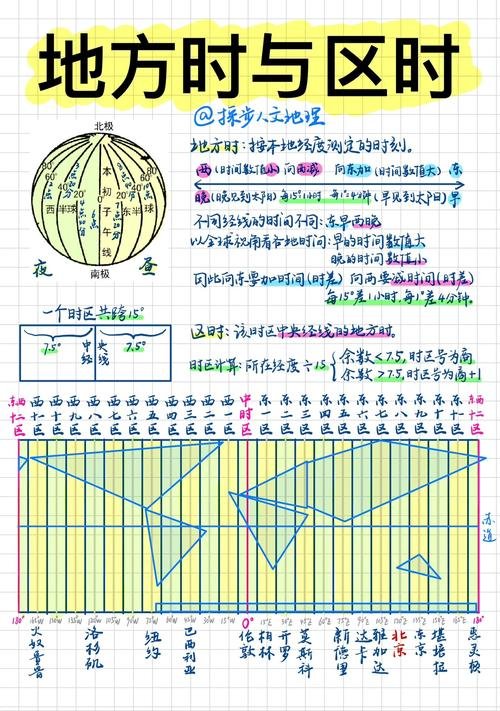 地方时与区时
@探步人文地理
北极
80° 60° 40° 20° 20° 40° 60° 80°
西半球 本初子午线 东半球
夜 南极 昼
地方时:按本地经度测定的时刻。
西(时间数值小)向西减 向东加(时间数值大)东
晚(晚见到太阳)每15°1小时 每1°4分钟(早见到太阳)早
不同经线的时间不同:东早西晚
以全球视角看各地时间:早的时间数值大
晚的时间数值小
因此向东要加时间(时差)向西要减时间(时差)
每15°差1小时,每1°差4分钟。
一个时区共跨15°
7.5° 中央经线 7.5°
区时:该时区中央经线的地方时。
时区计算:所在经度÷15
余数<7.5,时区号为商
余数>7.5,时区号为商+1
东西十二区 西十一区 西十区 西九区 西八区 西七区 西六区 西五区 西四区 西三区 西二区 西一区 中时区 东一区 东二区 东三区 东四区 东五区 东六区 东七区 东八区 东九区 东十区 东十一区 东西十二区
赤道
180° 165°W 150°W 135°W 120°W 105°W 90°W 75°W 60°W 45°W 30°W 15°W 0° 15°E 30°E 45°E 60°E 75°E 90°E 105°E 120°E 135°E 150°E 165°E 180°
火奴鲁鲁 洛杉矶 纽约 巴西利亚 伦敦 柏林 开罗 莫斯科 新德里 达卡 雅加达 北京 东京 堪培拉 惠灵顿